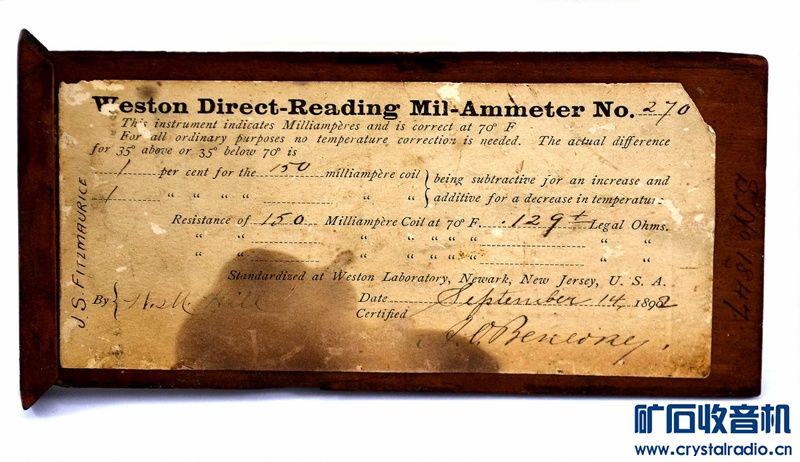 Weston Direct-Reading Mil-Ammeter No. 270
This instrument indicates Milliampères and is correct at 70° F
For all ordinary purposes no temperature correction is needed. The actual difference
for 35° above or 35° below 70° is
1 per cent for the 150 milliampère coil } being subtractive for an increase and
1 " " " " " " " additive for a decrease in temperature
Resistance of 150 Milliampère Coil at 70° F. .129+ Legal Ohms.
" " " " " " " " "
" " " " " " " " "
Standardized at Weston Laboratory, Newark, New Jersey, U. S. A.
By { Hill Date September 14, 1892
Certified
J. S. FITZMAURICE
矿石收音机
www.crystalradio.cn